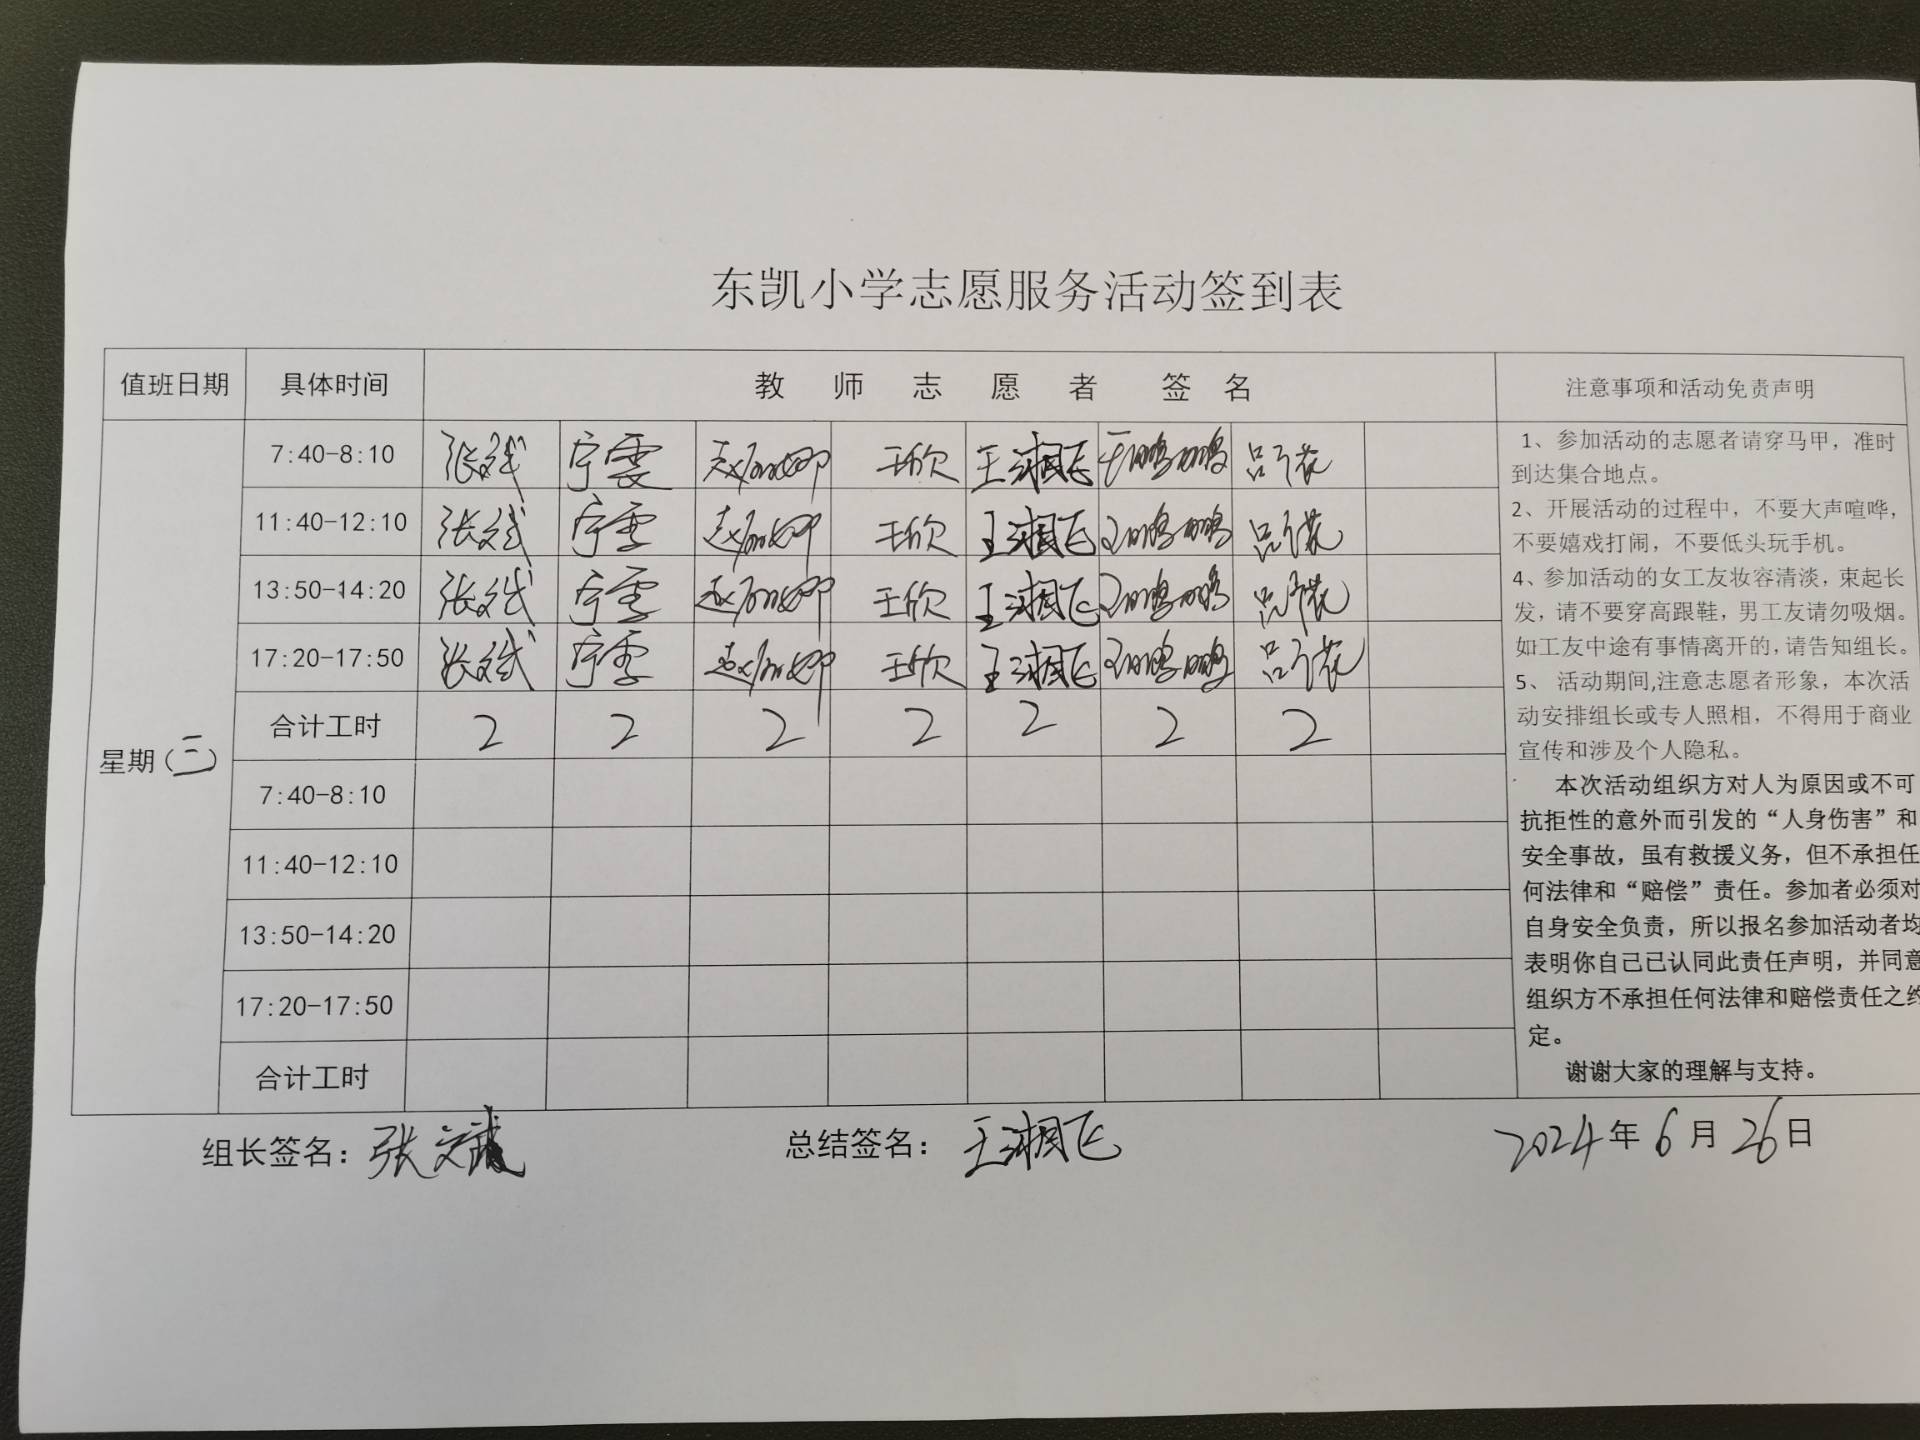 东凯小学志愿服务活动签到表
值班日期 具体时间 教师志愿者签名 注意事项和活动免责声明
7:40-8:10 张文斌 宁雯 赵娜娜 王欣 王湘飞 王鹏鹏
11:40-12:10 张文斌 宁雯 王欣 王湘飞 王鹏鹏
13:50-14:20 张文斌 宁雯 王欣 王湘飞 王鹏鹏
17:20-17:50 张文斌 宁雯 王欣 王湘飞 王鹏鹏
合计工时 2 2 2 2 2 2 2
星期(三)
7:40-8:10
11:40-12:10
13:50-14:20
17:20-17:50
合计工时
1、参加活动的志愿者请穿马甲，准时
到达集合地点。
2、开展活动的过程中，不要大声喧哗，
不要嬉戏打闹，不要低头玩手机。
4、参加活动的女工友妆容清淡，束起长
发，请不要穿高跟鞋，男工友请勿吸烟。
如工友中途有事情离开的,请告知组长。
5、 活动期间,注意志愿者形象，本次活
动安排组长或专人照相，不得用于商业
宣传和涉及个人隐私。
本次活动组织方对人为原因或不可
抗拒性的意外而引发的“人身伤害”和
安全事故，虽有救援义务，但不承担任
何法律和“赔偿”责任。参加者必须对
自身安全负责，所以报名参加活动者均
表明你自己已认同此责任声明，并同意
组织方不承担任何法律和赔偿责任之约
定。
谢谢大家的理解与支持。
组长签名：张文斌 总结签名：王湘飞 2024年6月26日